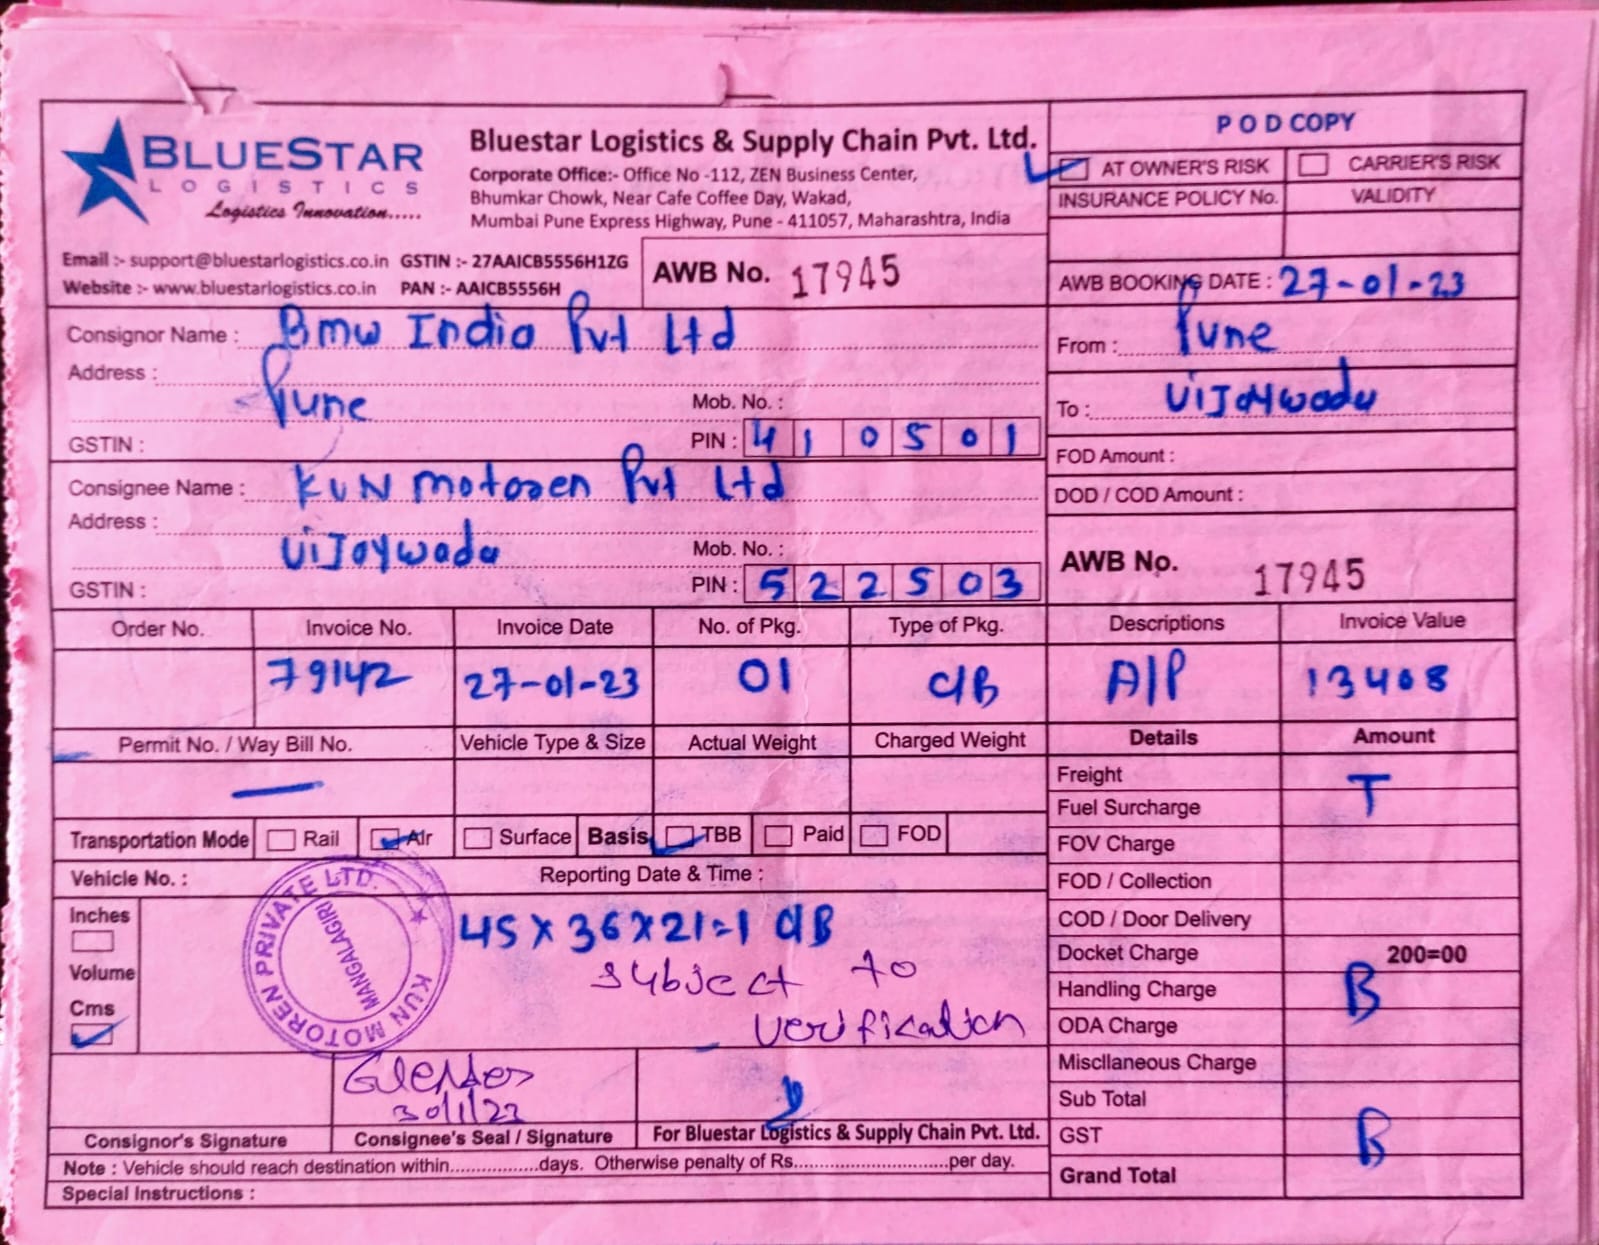 BLUESTAR
LOGISTICS
Logistics Innovation.....
Bluestar Logistics & Supply Chain Pvt. Ltd.
Corporate Office:- Office No -112, ZEN Business Center,
Bhumkar Chowk, Near Cafe Coffee Day, Wakad,
Mumbai Pune Express Highway, Pune - 411057, Maharashtra, India
Email :- support@bluestarlogistics.co.in GSTIN :- 27AAICB5556H1ZG
Website :- www.bluestarlogistics.co.in PAN :- AAICB5556H
AWB No. 17945
POD COPY
AT OWNER'S RISK CARRIER'S RISK
INSURANCE POLICY No. VALIDITY
AWB BOOKING DATE : 27-01-23
Consignor Name : Bmw India Pvt Ltd
Address :
Pune Mob. No. :
GSTIN : PIN : 410501
From : Pune
To : ViJaywada
Consignee Name : KUN motoren Pvt Ltd
Address :
ViJaywada Mob. No. :
GSTIN : PIN : 522503
FOD Amount :
DOD / COD Amount :
AWB No. 17945
Order No. Invoice No. Invoice Date No. of Pkg. Type of Pkg. Descriptions Invoice Value
79142 27-01-23 01 C/B A/P 13408
Permit No. / Way Bill No. Vehicle Type & Size Actual Weight Charged Weight Details Amount
Transportation Mode Rail AIr Surface Basis TBB Paid FOD
Vehicle No. : Reporting Date & Time :
Inches
Volume
Cms
45 x 36 x 21=1 C/B
subject to
verification
KUN MOTOREN PRIVATE LTD.
MANGALAGIRI
Freight T
Fuel Surcharge
FOV Charge
FOD / Collection
COD / Door Delivery
Docket Charge 200=00
Handling Charge B
ODA Charge
Miscllaneous Charge
Sub Total
GST B
Grand Total
30/1/23
Consignor's Signature Consignee's Seal / Signature For Bluestar Logistics & Supply Chain Pvt. Ltd.
Note : Vehicle should reach destination within.................days. Otherwise penalty of Rs............................per day.
Special Instructions :